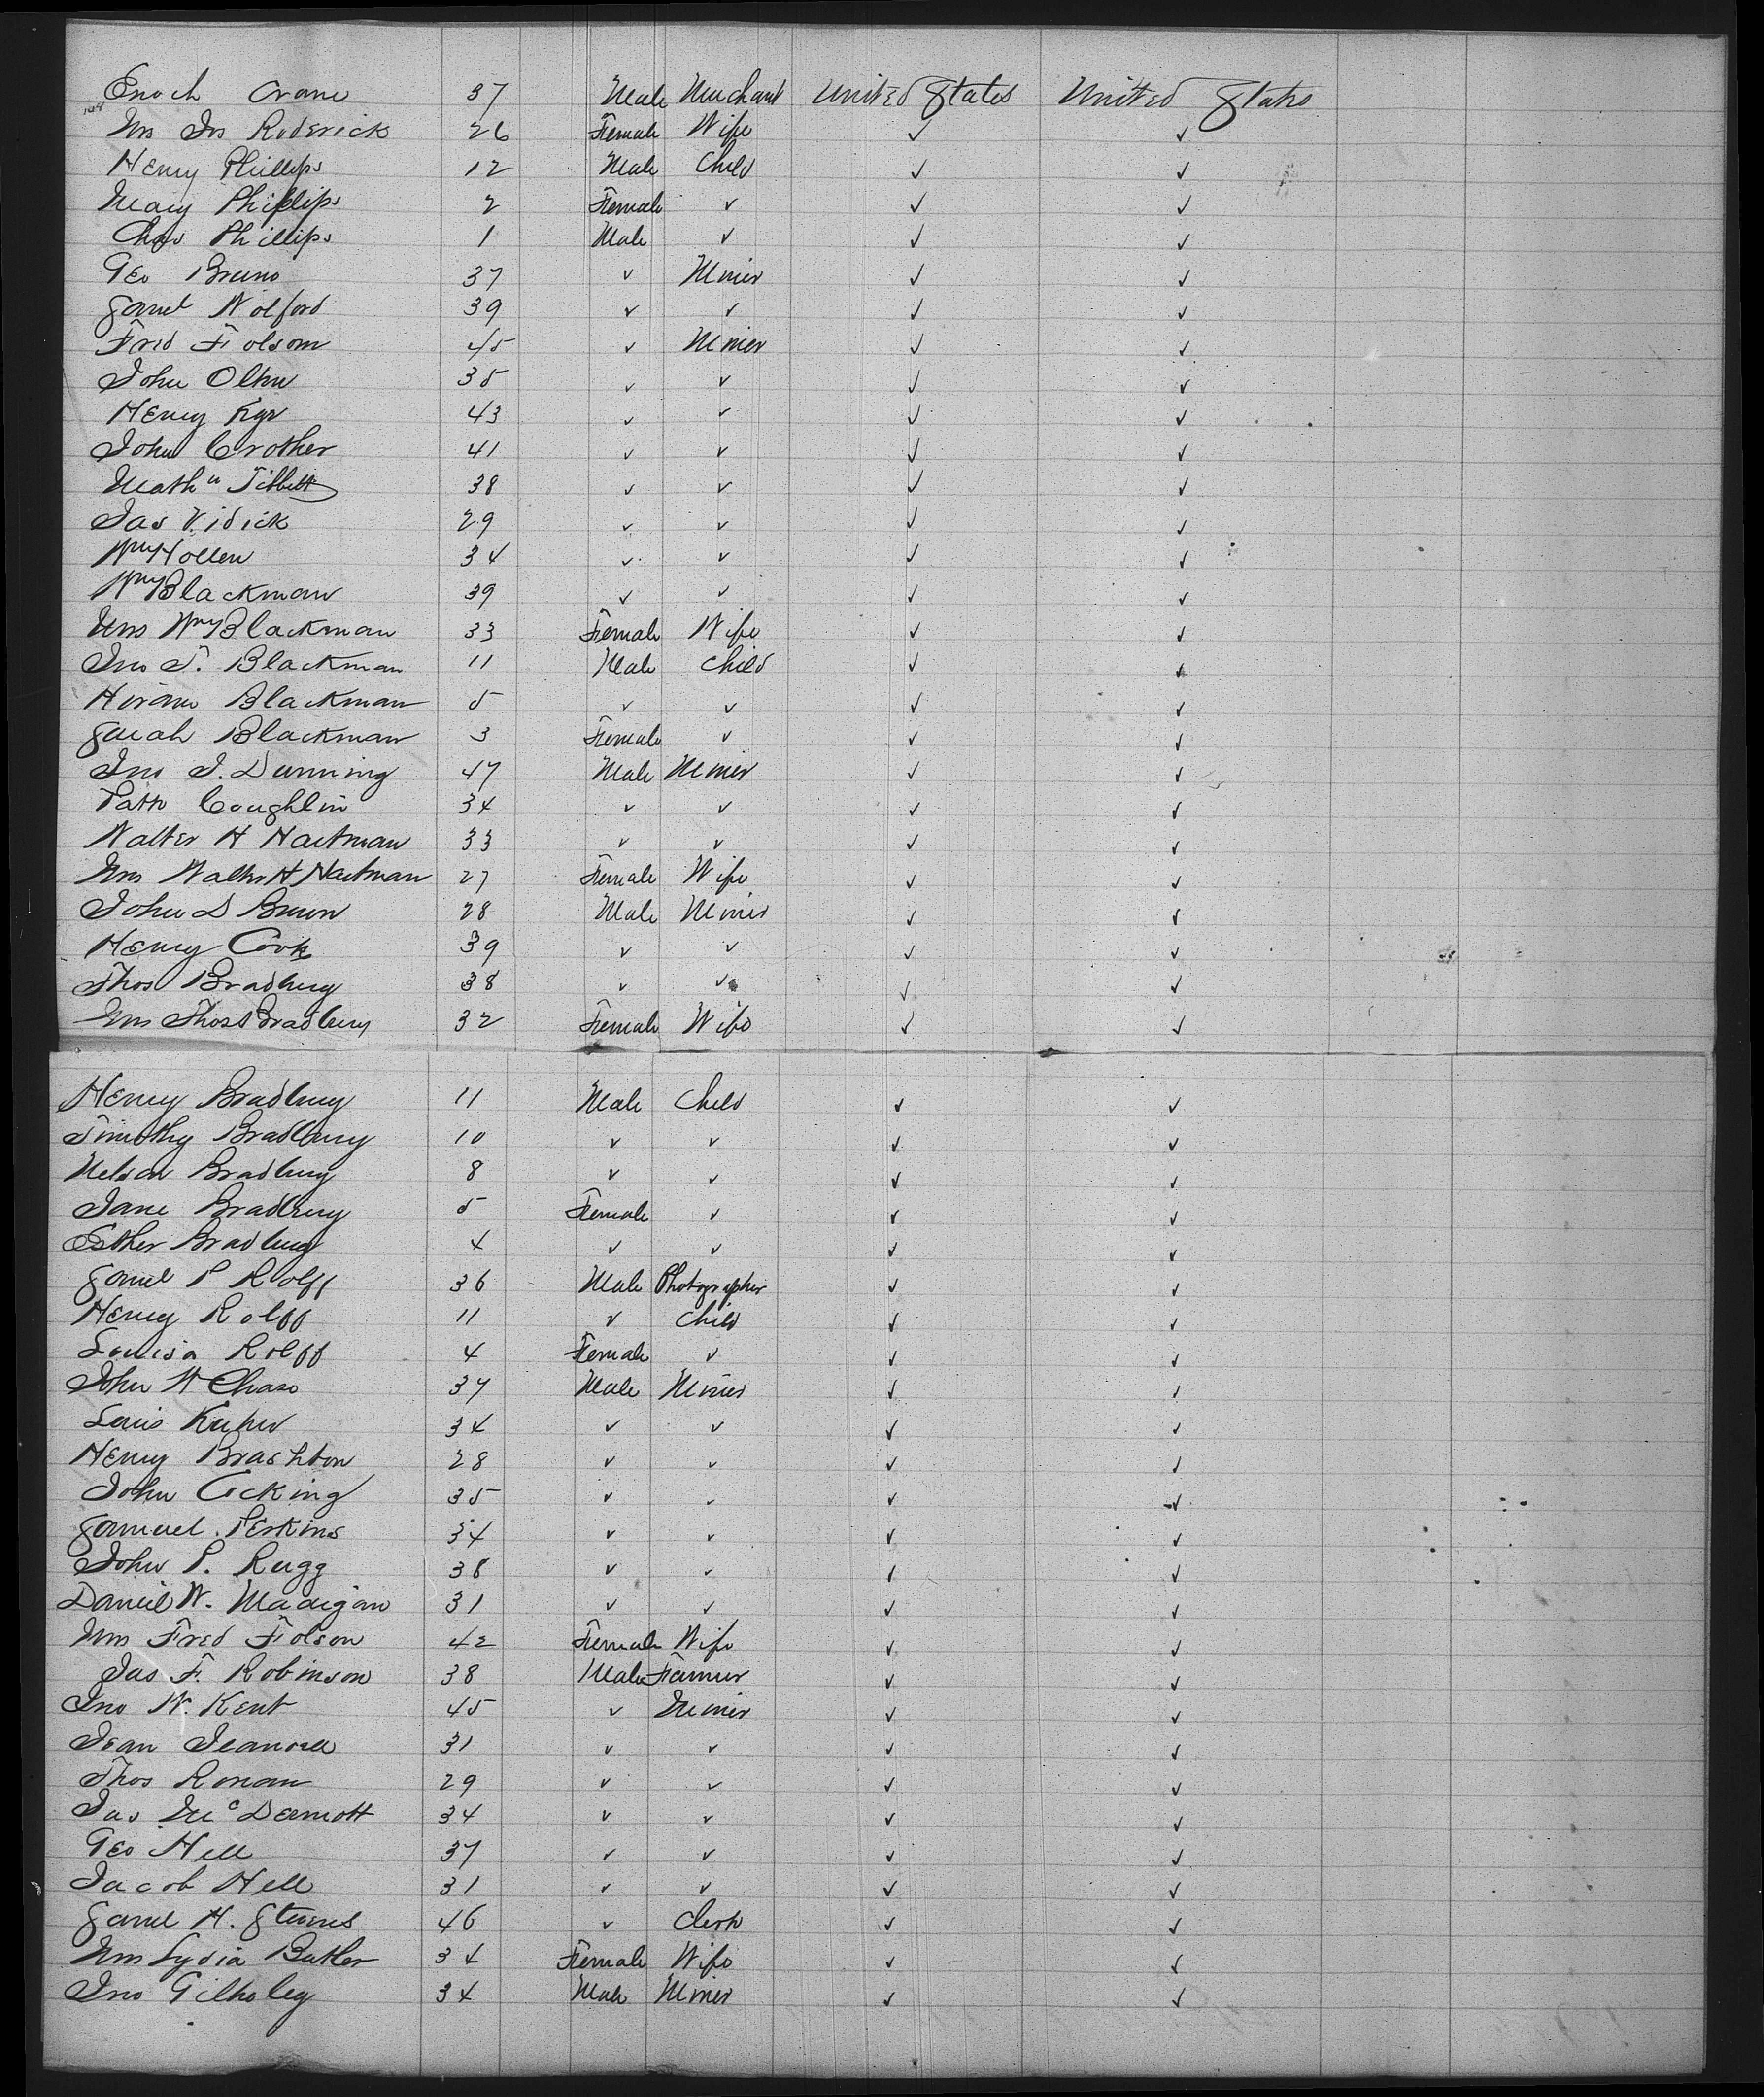 Enoch Crane 37 Male Merchant United States United States
Mrs Jrs Roderick 26 Female Wife ✓ ✓
Henry Phillips 12 Male Child ✓ ✓
Mary Phillips 2 Female ✓ ✓ ✓
Chas Phillips 1 Male ✓ ✓ ✓
Geo Bruno 37 ✓ Miner ✓ ✓
Saml Wolford 39 ✓ ✓ ✓ ✓
Fred Folsom 45 ✓ Miner ✓ ✓
John 35 ✓ ✓ ✓ ✓
Henry 43 ✓ ✓ ✓ ✓
John Crother 41 ✓ ✓ ✓ ✓
Mathw Tibbett 38 ✓ ✓ ✓ ✓
Jas Vidick 29 ✓ ✓ ✓ ✓
Wm Hollen 34 ✓ ✓ ✓ ✓
Wm Blackman 39 ✓ ✓ ✓ ✓
Mrs Wm Blackman 33 Female Wife ✓ ✓
Jno T. Blackman 11 Male Child ✓ ✓
Hiram Blackman 5 ✓ ✓ ✓ ✓
Sarah Blackman 3 Female ✓ ✓ ✓
Jno J. Dunning 47 Male Miner ✓ ✓
Patk Coughlin 34 ✓ ✓ ✓ ✓
Walter H Hartman 33 ✓ ✓ ✓ ✓
Mrs Walter H Hartman 27 Female Wife ✓ ✓
John D 28 Male Miner ✓ ✓
Henry Cook 39 ✓ ✓ ✓ ✓
Thos Bradbury 38 ✓ ✓ ✓ ✓
Mrs Thos Bradbury 32 Female Wife ✓ ✓
Henry Bradbury 11 Male Child ✓ ✓
Timothy Bradbury 10 ✓ ✓ ✓ ✓
Nelson Bradbury 8 ✓ ✓ ✓ ✓
Jane Bradbury 5 Female ✓ ✓ ✓
Esther Bradbury 4 ✓ ✓ ✓ ✓
Saml P Rolff 36 Male Photographer ✓ ✓
Henry Rolff 11 ✓ Child ✓ ✓
Louisa Rolff 4 Female ✓ ✓ ✓
John W Chase 37 Male Miner ✓ ✓
Louis Kuhn 34 ✓ ✓ ✓ ✓
Henry Brashton 28 ✓ ✓ ✓ ✓
John Cocking 35 ✓ ✓ ✓ ✓
Samuel Perkins 34 ✓ ✓ ✓ ✓
John P. Rugg 38 ✓ ✓ ✓ ✓
Daniel W. Madigan 31 ✓ ✓ ✓ ✓
Mrs Fred Folsom 42 Female Wife ✓ ✓
Jas F. Robinson 38 Male Farmer ✓ ✓
Jno W. Kent 45 ✓ Miner ✓ ✓
Jean 31 ✓ ✓ ✓ ✓
Thos Ronan 29 ✓ ✓ ✓ ✓
Jas McDermott 34 ✓ ✓ ✓ ✓
Geo Hell 37 ✓ ✓ ✓ ✓
Jacob Hell 31 ✓ ✓ ✓ ✓
Saml H. Sterns 46 ✓ Clerk ✓ ✓
Mrs Lydia Butler 34 Female Wife ✓ ✓
Jno Gilholey 34 Male Miner ✓ ✓